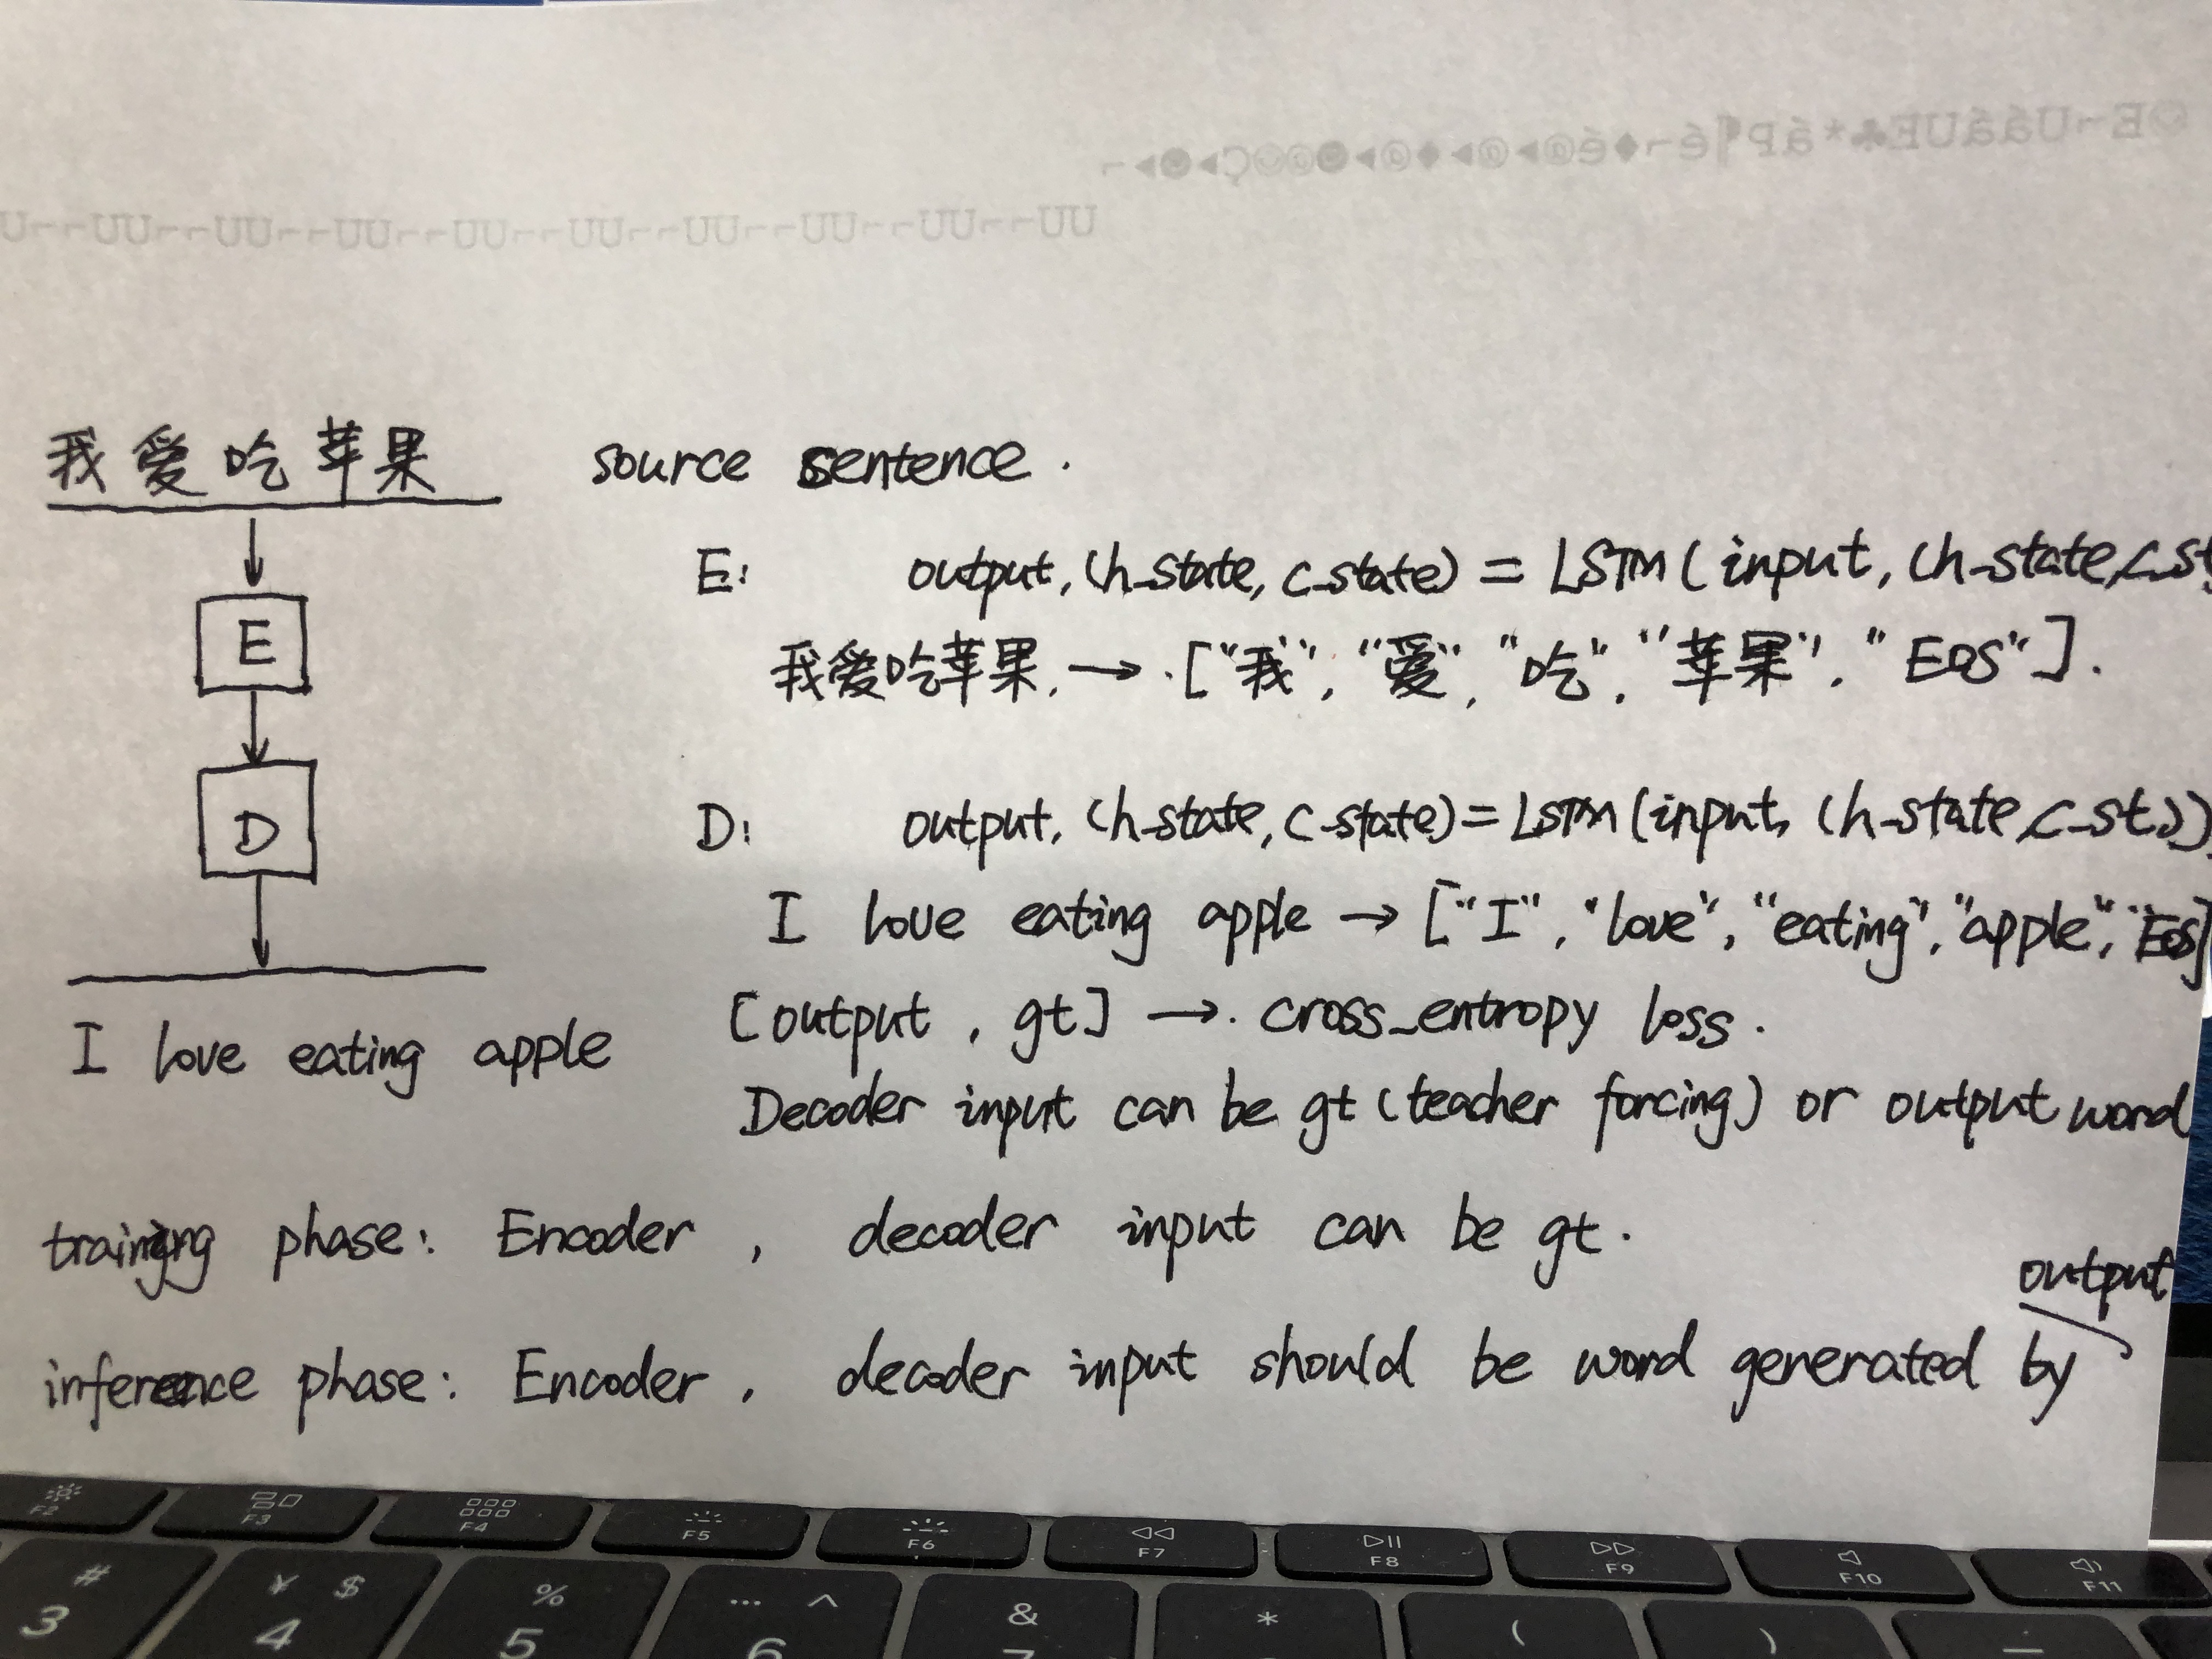 我爱吃苹果 source sentence.
E
D
I love eating apple
E: output, (h_state, c_state) = LSTM (input, (h_state, c_st
我爱吃苹果. → . ["我", "爱", "吃", "苹果", "EOS"].
D: output, (h_state, c_state) = LSTM (input, (h_state, c_st.))
I love eating apple → ["I", "love", "eating", "apple", "EOS]
[output, gt] → . cross_entropy loss.
Decoder input can be gt (teacher forcing) or output word
training phase: Encoder, decoder input can be gt.
inference phase: Encoder, decoder input should be word generated by output
F2
F3
F4
F5
F6
F7
F8
F9
F10
F11
# 3
¥ $ 4
% 5
… ^ 6
&
*
(
)